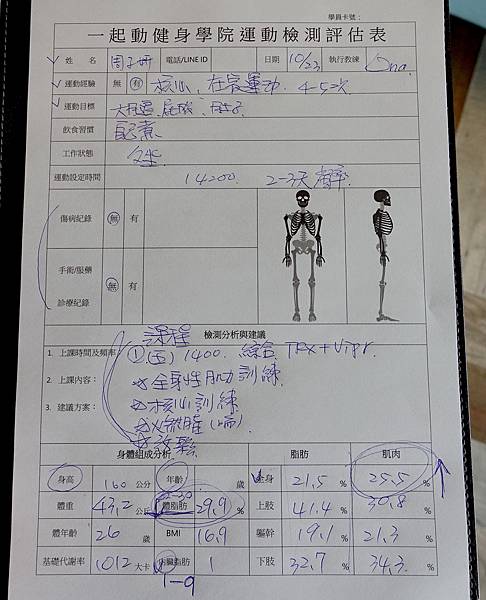 學員卡號：
一起動健身學院運動檢測評估表
姓 名 周子妍 電話/LINE ID 日期 10/23 執行教練 Ona
運動經驗 無 有 核心、在家運動. 4-5次
運動目標 大腿、屁股、肚子
飲食習慣 自己煮
工作狀態 久坐
運動設定時間 14:00. 2-3天
傷病紀錄 無 有
手術/服藥 無 有
診療紀錄
檢測分析與建議
課程
1. 上課時間及頻率 ①(五) 1400. 綜合 TRX+Vipr.
2. 上課內容： 全身性肌力訓練
3. 建議方案： 核心訓練
放鬆
身體組成分析 脂肪 肌肉
身高 160 公分 年齡 歲 全身 21.5 % 25.5 %
20-30
體重 43.2 公斤 體脂肪 29.9 % 上肢 41.4 % 30.8 %
體年齡 26 歲 BMI 16.9 軀幹 19.1 % 21.3 %
基礎代謝率 1012 大卡 內臟脂肪 1 下肢 32.7 % 34.3 %
1-9